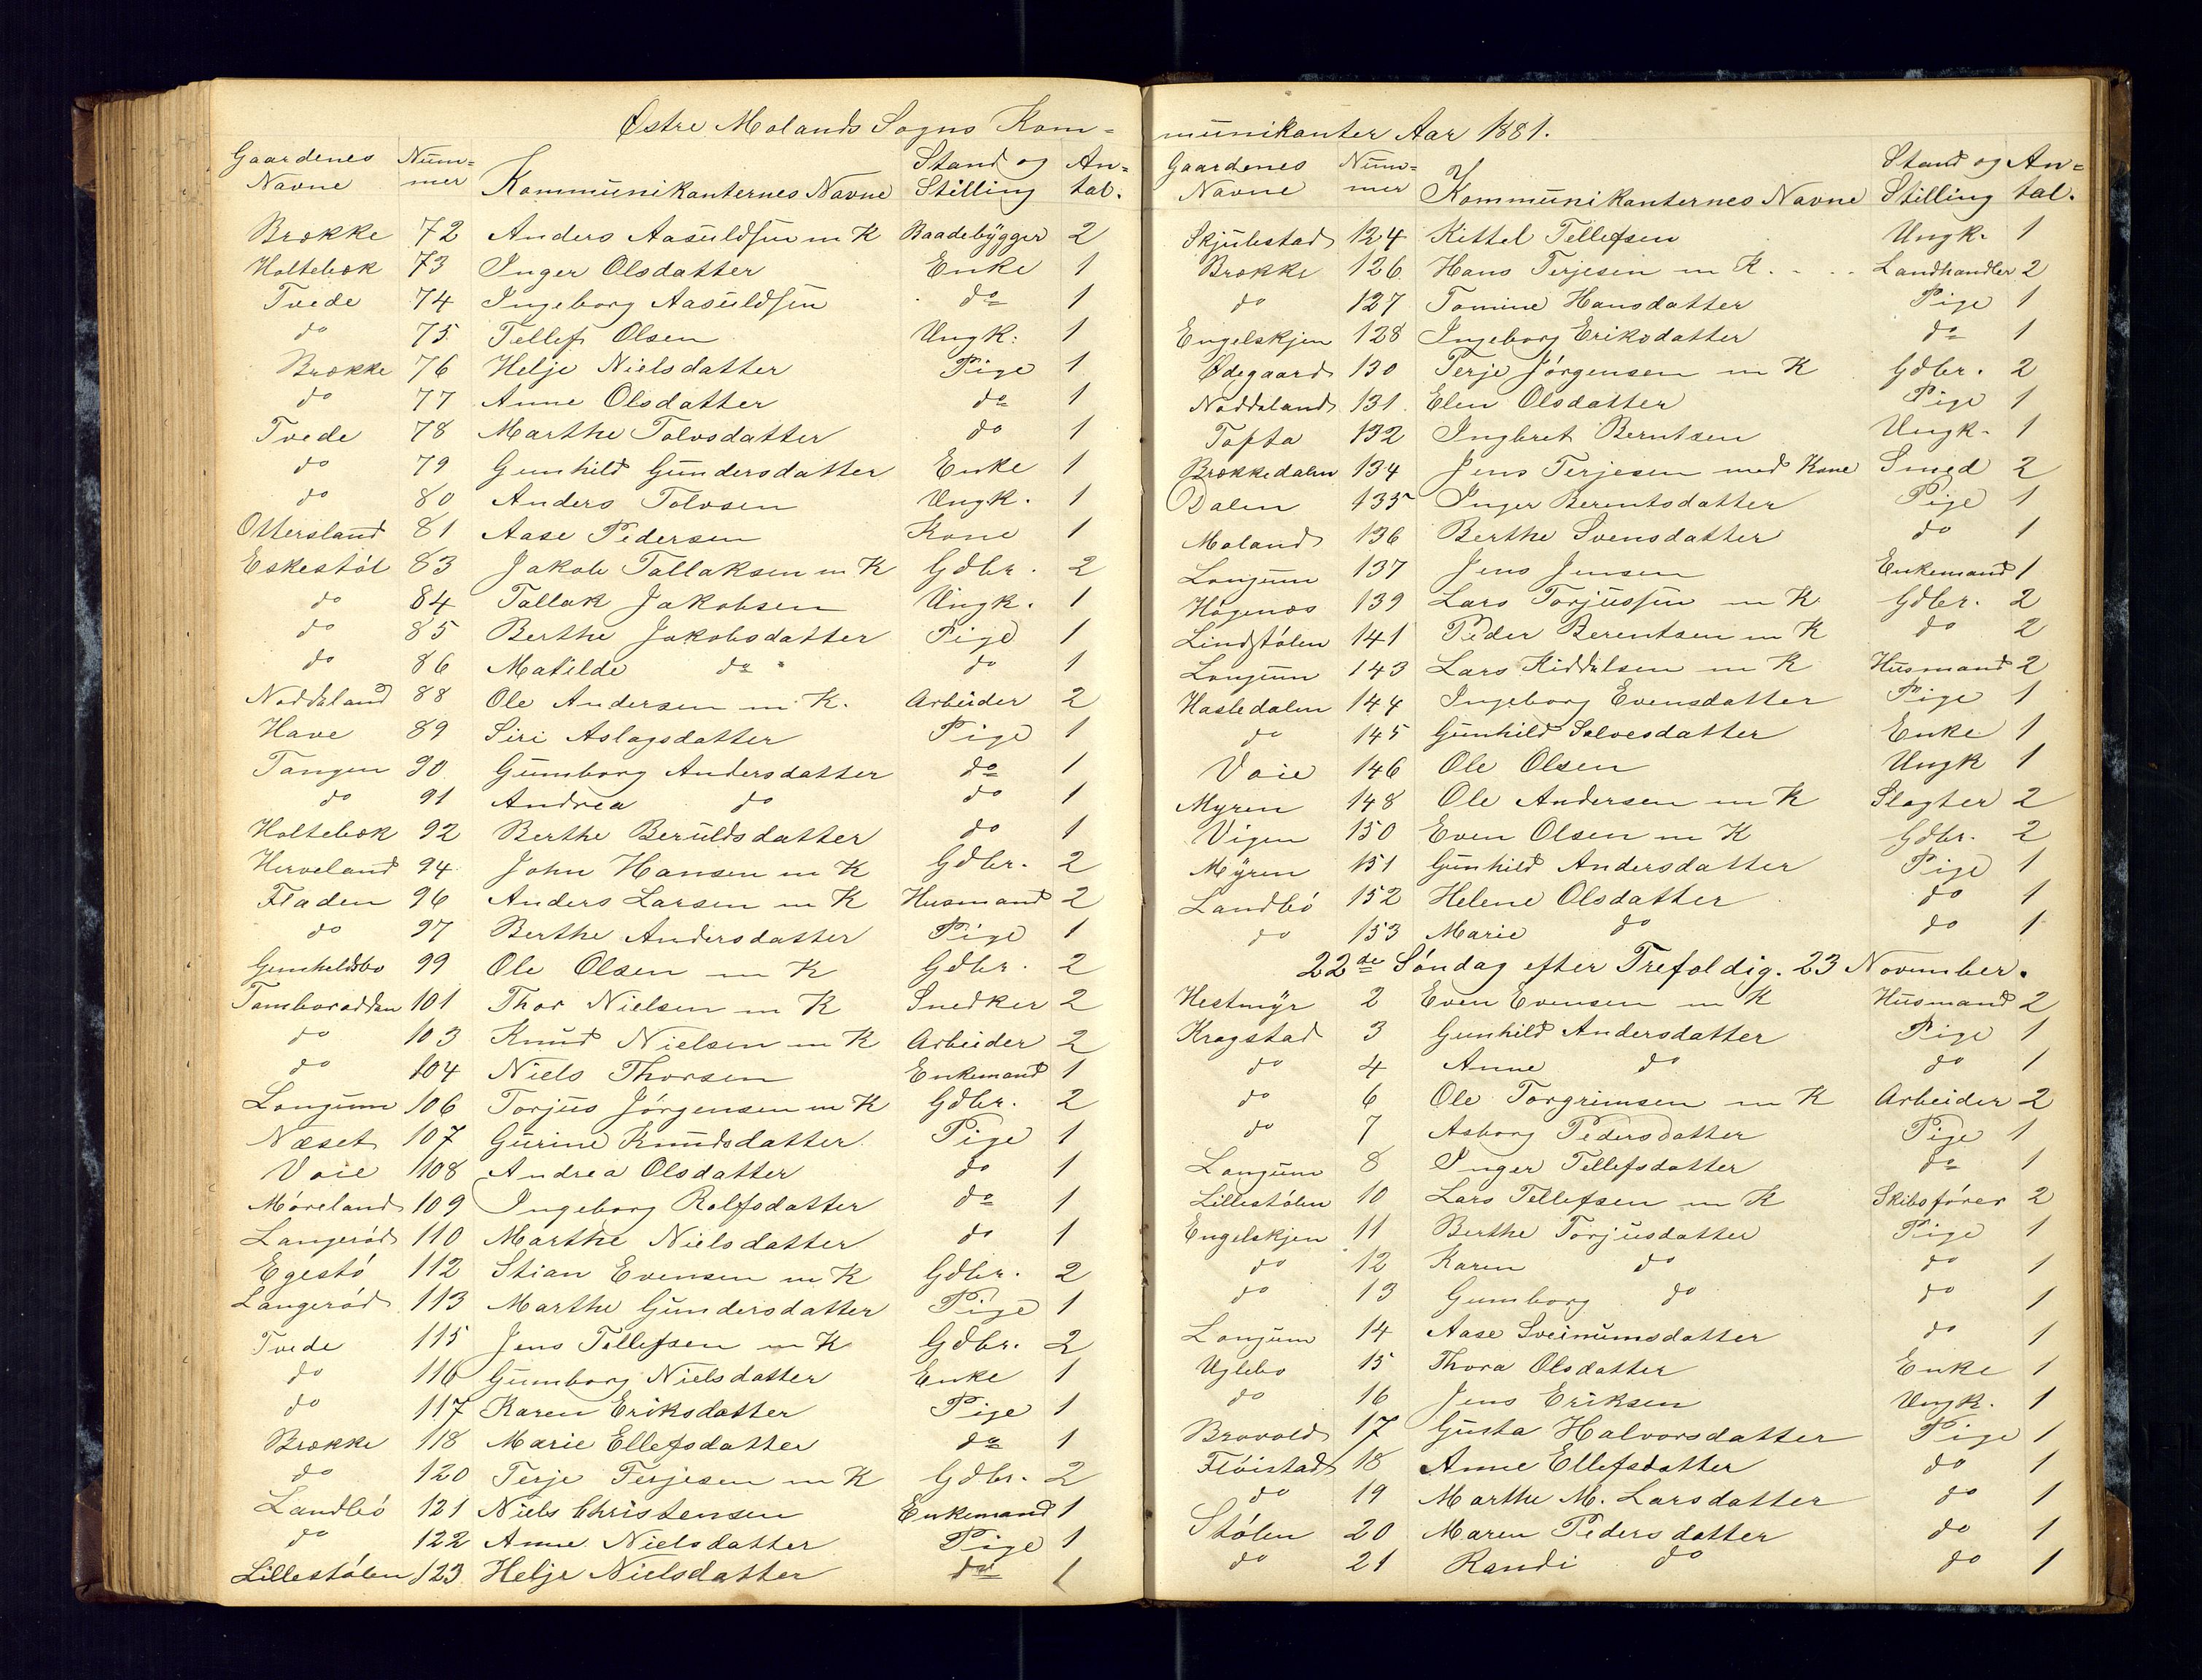 Østre Molands Sogns Kom=
Gaardenes Navne Num=mer Kommunikanternes Navne Stand og Stilling An=tal.
Brække 72 Anders Aasuldsen m K Baadebygger 2
Holtebæk 73 Inger Olsdatter Enke 1
Tvede 74 Ingeborg Aasuldsen do 1
do 75 Tellef Olsen Ungk: 1
Brække 76 Helje Nielsdatter Pige 1
do 77 Anne Olsdatter do 1
Tvede 78 Marthe Tolvsdatter do 1
do 79 Gunhild Gundersdatter Enke 1
do 80 Anders Tolvsen Ungk. 1
Ottersland 81 Aase Pedersen Kone 1
Eskestøl 83 Jakob Tallaksen m K Gdbr. 2
do 84 Tallak Jakobsen Ungk. 1
do 85 Berthe Jakobsdatter Pige 1
do 86 Matilde do do 1
Noddeland 88 Ole Andersen m K. Arbeider 2
Have 89 Siri Aslagsdatter Pige 1
Tangen 90 Gumborg Andersdatter do 1
do 91 Andrea do do 1
Holtebæk 92 Berthe Beruldsdatter do 1
Herveland 94 John Hansen m K Gdbr. 2
Fladen 96 Anders Larsen m K Husmand 2
do 97 Berthe Andersdatter Pige 1
Gunheldsbo 99 Ole Olsen m K Gdbr. 2
Tamborodden 101 Thor Nielsen m K Snedker 2
do 103 Knud Nielsen m K Arbeider 2
do 104 Niels Thorsen Enkemand 1
Longum 106 Torjus Jørgensen m K Gdbr. 2
Næset 107 Gurine Knudsdatter Pige 1
Vaie 108 Andrea Olsdatter do 1
Møreland 109 Ingeborg Rolfsdatter do 1
Langerød 110 Marthe Nielsdatter do 1
Egestø 112 Stian Evensen m K Gdbr. 2
Langerød 113 Marthe Gundersdatter Pige 1
Tvede 115 Jens Tellefsen m K Gdbr. 2
do 116 Gumborg Nielsdatter Enke 1
do 117 Karen Eriksdatter Pige 1
Brække 118 Marie Ellefsdatter do 1
do 120 Terje Terjesen m K Gdbr. 2
Landbø 121 Niels Christensen Enkemand 1
do 122 Anne Nielsdatter Pige 1
Lillestølen 123 Helje Nielsdatter do 1
munikanter Aar 1881.
Gaardenes Navne Num=mer Kommunikanternes Navne Stand og Stilling An=tal.
Skjulestad 124 Kittel Tellefsen Ungk. 1
Brække 126 Hans Terjesen m K. Landhandler 2
do 127 Tomine Hansdatter Pige 1
Engelskjen 128 Ingeborg Eriksdatter do 1
Ødegaard 130 Terje Jørgensen m K Gdbr. 2
Noddeland 131 Elen Olsdatter Pige 1
Tofta 132 Ingbret Berntsen Ungk. 1
Brækkedalen 134 Jens Terjesen med Kone Smed 2
Dalen 135 Inger Berentsdatter Pige 1
Moland 136 Berthe Svensdatter do 1
Longum 137 Jens Jensen Enkemand 1
Høgenæs 139 Lars Torjussen m K Gdbr. 2
Lindstølen 141 Peder Berentsen m K do 2
Longum 143 Lars Kiddelsen m K Husmand 2
Hasledalen 144 Ingeborg Evensdatter Pige 1
do 145 Gunhild Salvesdatter Enke 1
Vaie 146 Ole Olsen Ungk 1
Myren 148 Ole Andersen m K Slagter 2
Vigen 150 Even Olsen m K Gdbr. 2
Myren 151 Gunhild Andersdatter Pige 1
Landbø 152 Helene Olsdatter do 1
do 153 Marie do do 1
22de Søndag efter Trefoldig. 23 November.
Hestmyr 2 Even Evensen m K Husmand 2
Kragstad 3 Gunhild Andersdatter Pige 1
do 4 Anne do do 1
do 6 Ole Torgrimsen m K Arbeider 2
do 7 Asborg Pedersdatter Pige 1
Longum 8 Inger Tellefsdatter do 1
Lillestølen 10 Lars Tellefsen m K Skibsfører 2
Engelskjen 11 Berthe Torjusdatter Pige 1
do 12 Karen do do 1
do 13 Gumborg do do 1
Longum 14 Aase Sveinumsdatter do 1
Uglebo 15 Thora Olsdatter Enke 1
do 16 Jens Eriksen Ungk. 1
Brovold 17 Gusta Halvorsdatter Pige 1
Fløistad 18 Anne Ellefsdatter do 1
do 19 Marthe M. Larsdatter do 1
Stølen 20 Maren Pedersdatter do 1
do 21 Randi do do 1